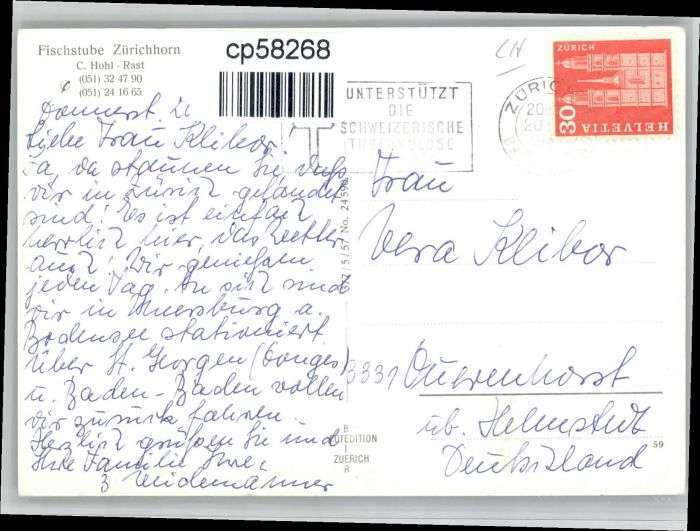 Fischstube Zürichhorn
C. Hohl - Rast
(051) 32 47 90
(051) 24 16 65
cp58268
UNTERSTÜTZT
DIE
SCHWEIZERISCHE
ZÜRICH
HELVETIA
30
Donnerst.
Liebe Frau Klibor.
Ja, da staunen Sie daß
wir in Zürich gelandet
sind! Es ist einfach
herrlich hier, das Wetter
auch! Wir genießen
jeden Tag. An sich sind
wir in Meersburg a.
Bodensee stationiert
über St. Georgen
u. Baden-Baden wollen
wir zurück fahren.
Herzlich grüßen Sie und
Ihre Familie Ihre
3
Frau
Vera Klibor
3331 Querenhorst
üb. Helmstedt
Deutschland
EDITION
ZUERICH
59